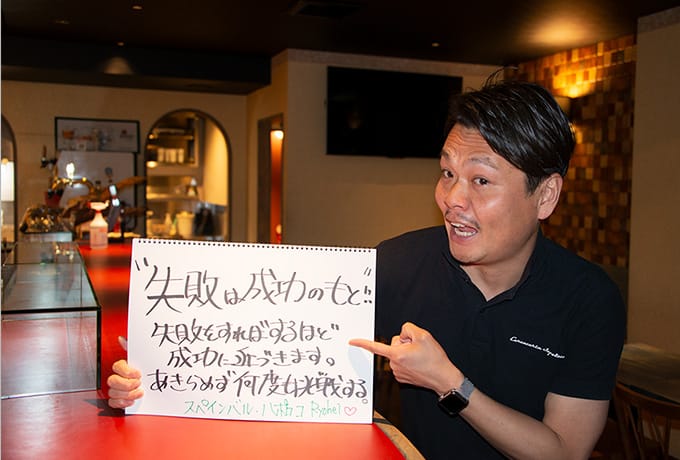 "失敗は成功のもと"
失敗をすればするほど
成功に近づきます。
あきらめず何度も挑戦する。
スペインバル・八十コ Ryohei♡